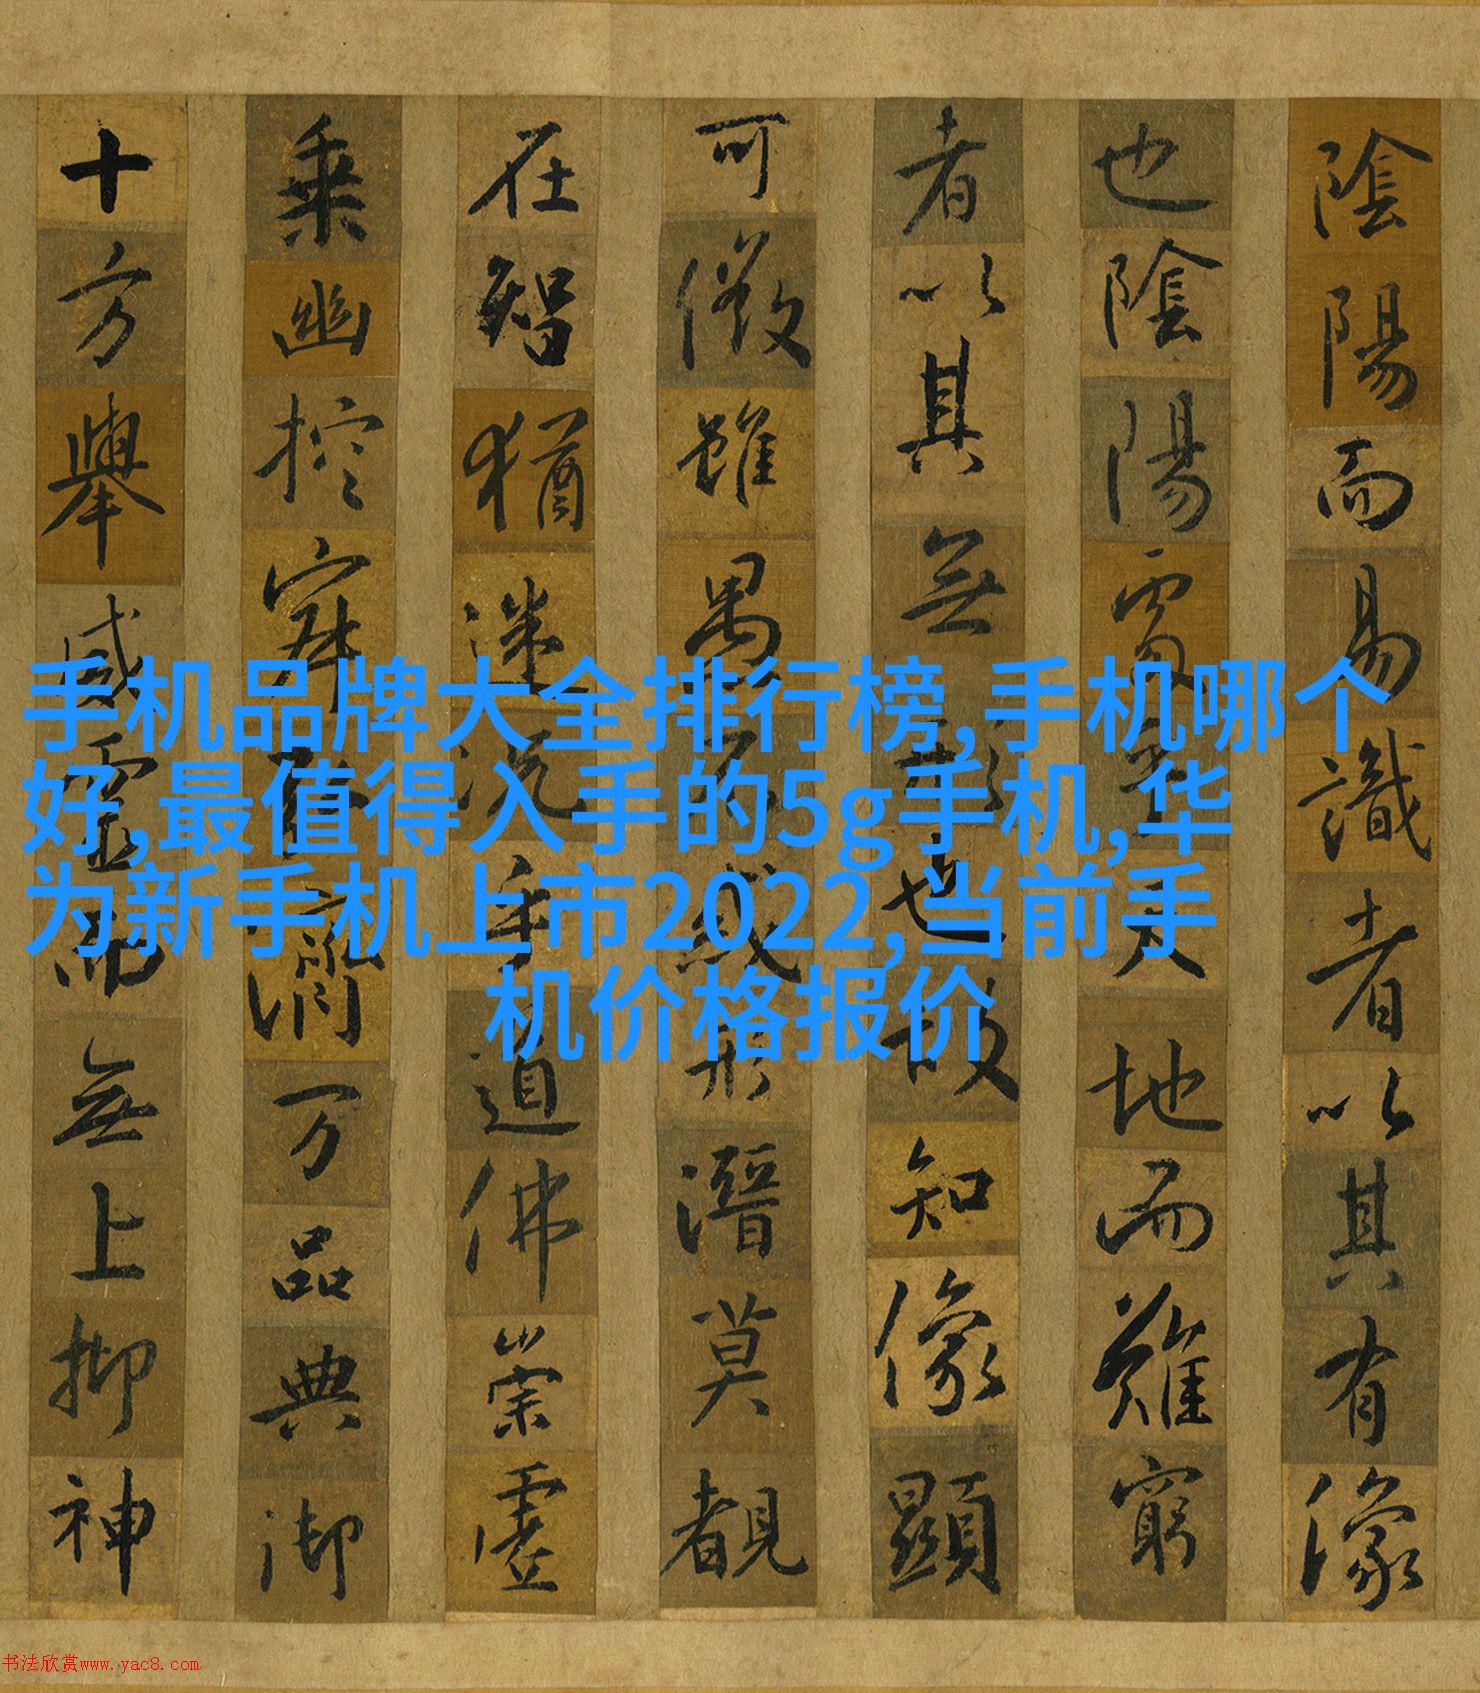 陰陽而易識者以其有像
也陰陽處乎天地而難窮
者以其無形也故知像顯
可徵雖愚不惑形潛莫覩
在智猶迷況乎道佛崇虛
乘幽控寂弘濟万品典御
十方舉威靈而無上抑神
手机品牌大全排行榜,手机哪个
好,最值得入手的5g手机,华
为新手机上市2022,当前手
机价格报价
书法欣赏www.yac8.com